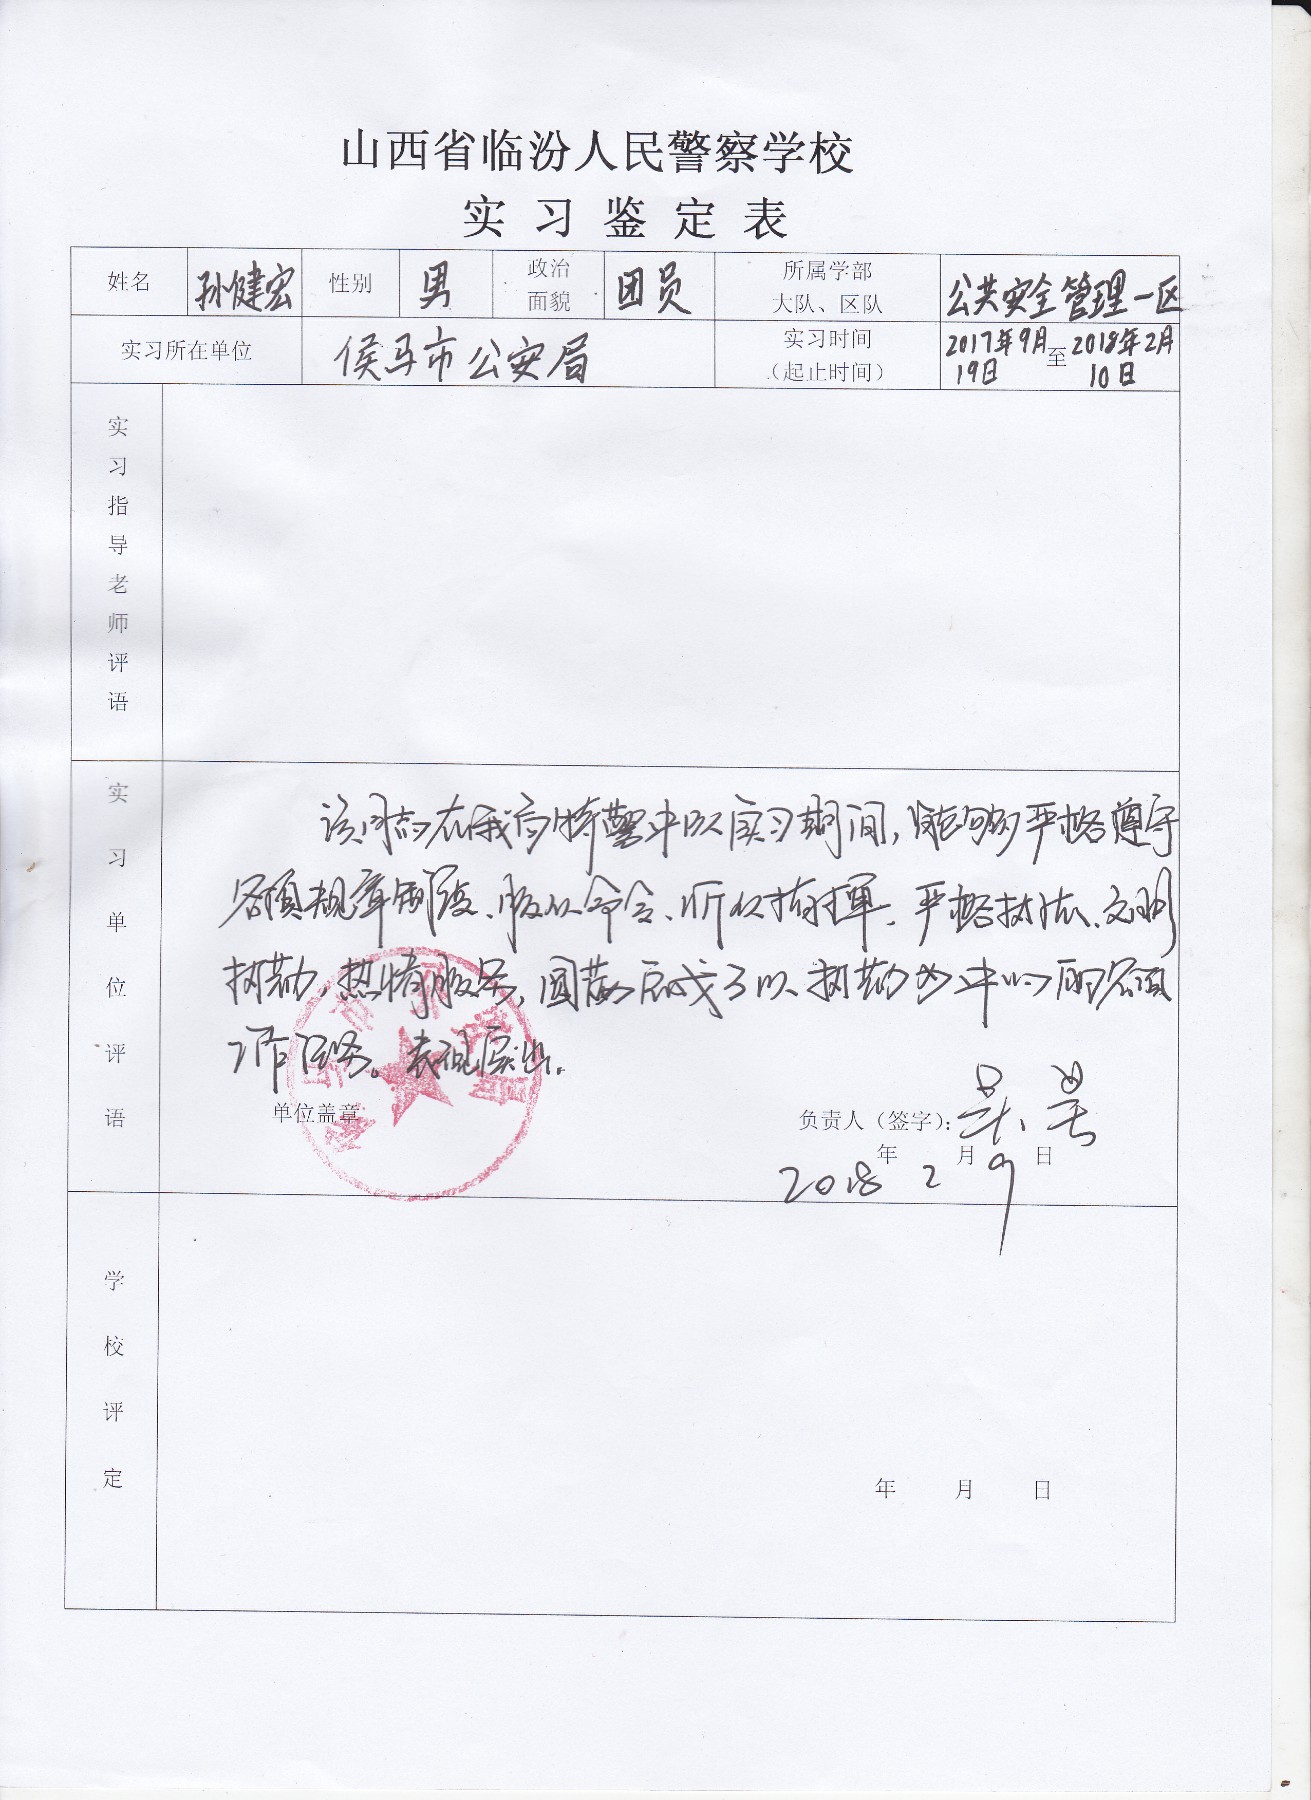 山西省临汾人民警察学校
实习鉴定表
姓名 孙健宏 性别 男 政治面貌 团员 所属学部大队、区队 公共安全管理一区
实习所在单位 侯马市公安局 实习时间(起止时间) 2017年9月19日至2018年2月10日
实习指导老师评语
实习单位评语
该同志在我局特警中队实习期间,能够严格遵守
各项规章制度、服从命令、听从指挥、严格执法、文明
执勤,热情服务,圆满完成了以执勤为中心的各项
工作任务。表现突出。
单位盖章
负责人(签字):
年 月 日
2018 2 9
学校评定
年 月 日